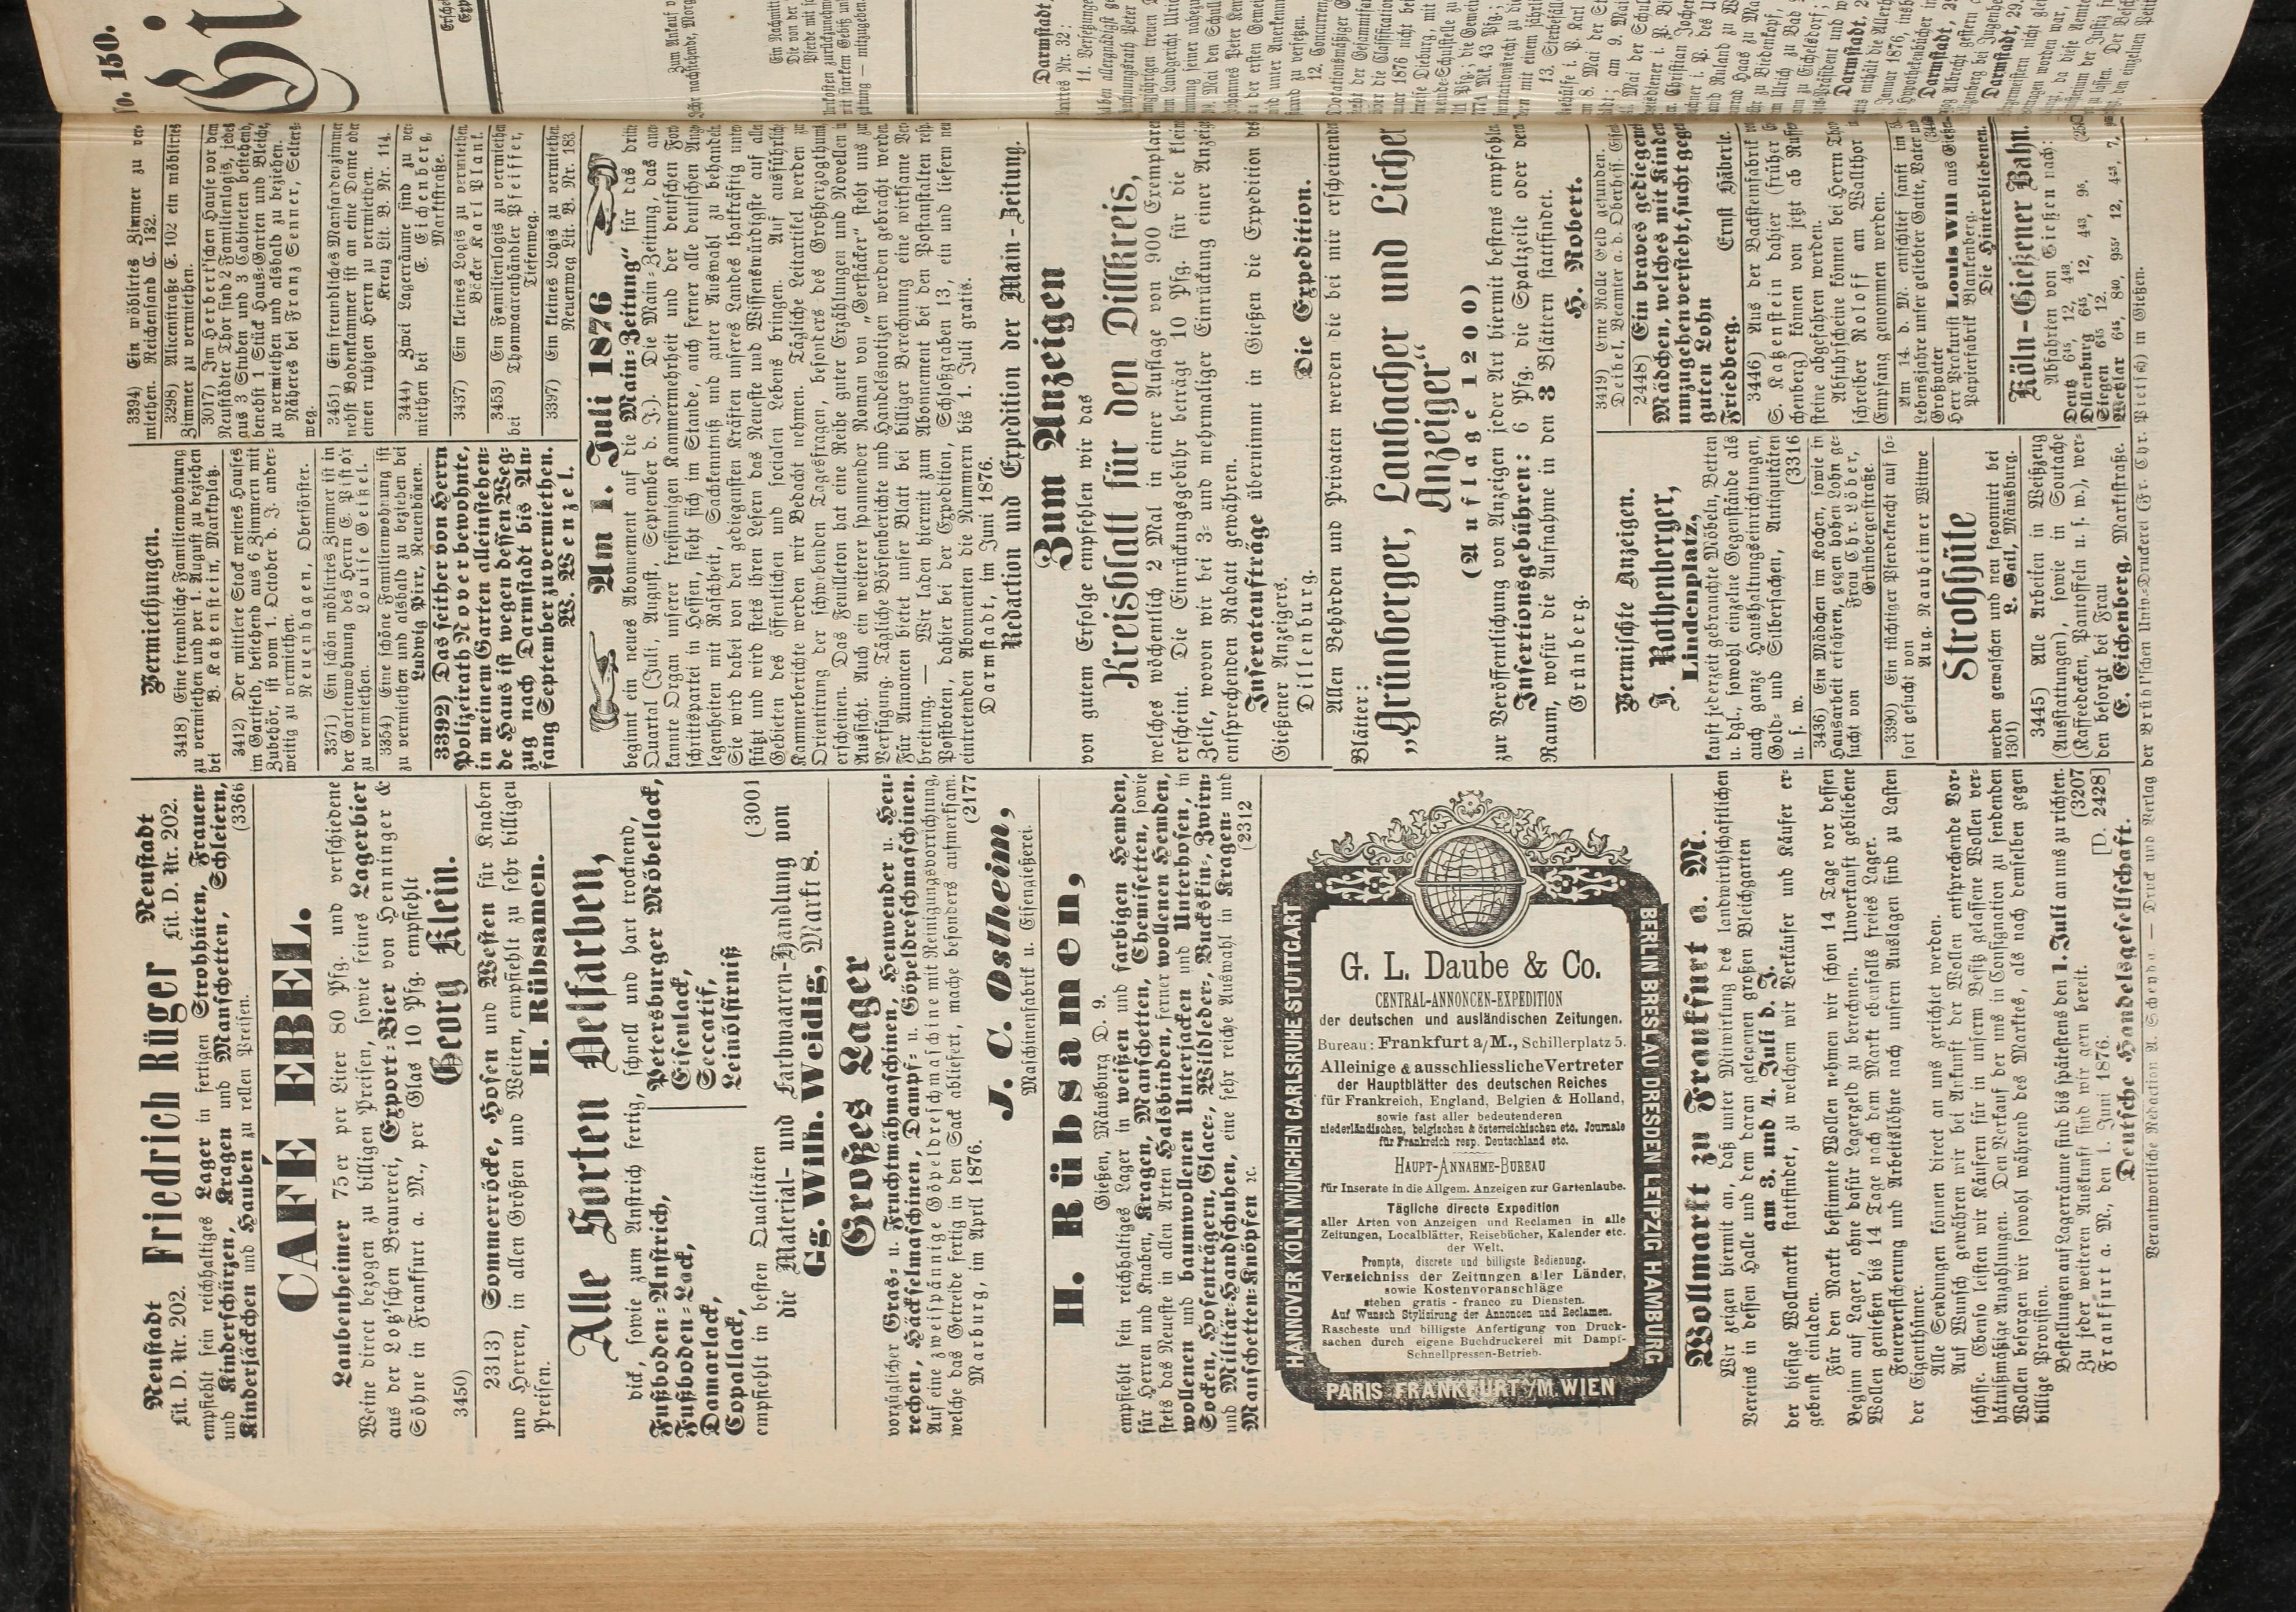 Neustadt Friedrich Rüger Neustadt
Lit. D. Nr. 202. Lit. D. Nr. 202.
empfiehlt sein reichhaltiges Lager in fertigen Strohhüten, Frauen-
und Kinderschürzen, Kragen und Manschetten, Schleiern,
Kinderjäckchen und Hauben zu rellen Preisen. (3366
CAFÉ EBEL.
Laubenheimer 75er per Liter 80 Pfg. und verschiedene
Weine direct bezogen zu billigen Preisen, sowie feines Lagerbier
aus der Lotz'schen Brauerei, Export-Bier von Henninger &
Söhne in Frankfurt a. M., per Glas 10 Pfg. empfiehlt
3450) Georg Klein.
2313) Sommerröcke, Hosen und Westen für Knaben
und Herren, in allen Größen und Weiten, empfiehlt zu sehr billigen
Preisen. H. Rübsamen.
Alle Sorten Oelfarben,
dick, sowie zum Anstrich fertig, schnell und hart trocknend,
Fußboden-Anstrich,
Fußboden-Lack,
Damarlack,
Copallack,
Petersburger Möbellack,
Eisenlack,
Seccatif,
Leinölfirniß
empfiehlt in besten Qualitäten (3001
die Material- und Farbwaaren-Handlung von
Gg. Wilh. Weidig, Markt 8.
Großes Lager
vorzüglicher Gras- u. Fruchtmähmaschinen, Heuwender u. Heu-
rechen, Häckselmaschinen, Dampf- u. Göpeldreschmaschinen.
Auf eine zweispännige Göpeldreschmaschine mit Reinigungsvorrichtung,
welche das Getreide fertig in den Sack abliefert, mache besonders aufmerksam.
Marburg, im April 1876. (2177
J. C. Ostheim,
Maschinenfabrik u. Eisengießerei.
H. Rübsamen,
Gießen, Mäusburg D. 9.
empfiehlt sein reichhaltiges Lager in weißen und farbigen Hemden,
für Herren und Knaben, Kragen, Manschetten, Chemisetten, sowie
stets das Neueste in allen Arten Halsbinden, ferner wollenen Hemden,
wollenen und baumwollenen Unterjacken und Unterhosen, in
Socken, Hosenträgern, Glace-, Wildleder-, Buckskin-, Zwirn-
und Militär-Handschuhen, eine sehr reiche Auswahl in Kragen- und
Manschetten-Knöpfen ꝛc. (2312
HANNOVER KÖLN MÜNCHEN CARLSRUHE STUTTGART
BERLIN BRESLAU DRESDEN LEIPZIG HAMBURG
G. L. Daube & Co.
CENTRAL-ANNONCEN-EXPEDITION
der deutschen und ausländischen Zeitungen.
Bureau: Frankfurt a/M., Schillerplatz 5.
Alleinige & ausschliessliche Vertreter
der Hauptblätter des deutschen Reiches
für Frankreich, England, Belgien & Holland,
sowie fast aller bedeutenderen
niederländischen, belgischen & österreichischen etc. Journale
für Frankreich resp. Deutschland etc.
HAUPT-ANNAHME-BUREAU
für Inserate in die Allgem. Anzeigen zur Gartenlaube.
Tägliche directe Expedition
aller Arten von Anzeigen und Reclamen in alle
Zeitungen, Localblätter, Reisebücher, Kalender etc.
der Welt.
Prompte, discrete und billigste Bedienung.
Verzeichniss der Zeitungen aller Länder,
sowie Kostenvoranschläge
stehen gratis - franco zu Diensten.
Auf Wunsch Stylisirung der Annoncen und Reclamen.
Rascheste und billigste Anfertigung von Druck-
sachen durch eigene Buchdruckerei mit Dampf-
Schnellpressen-Betrieb.
PARIS FRANKFURT a/M. WIEN
Wollmarkt zu Frankfurt a. M.
Wir zeigen hiermit an, daß unter Mitwirkung des landwirthschaftlichen
Vereins in dessen Halle und dem daran gelegenen großen Bleichgarten
am 3. und 4. Juli d. J.
der hiesige Wollmarkt stattfindet, zu welchem wir Verkäufer und Käufer er-
gebenst einladen.
Für den Markt bestimmte Wollen nehmen wir schon 14 Tage vor dessen
Beginn auf Lager, ohne dafür Lagergeld zu berechnen. Unverkauft gebliebene
Wollen genießen bis 14 Tage nach dem Markt ebenfalls freies Lager.
Feuerversicherung und Arbeitslöhne nach unsern Auslagen sind zu Lasten
der Eigenthümer.
Alle Sendungen können direct an uns gerichtet werden.
Auf Wunsch gewähren wir bei Ankunft der Wollen entsprechende Vor-
schüsse. Ebenso leisten wir Käufern für in unserm Besitz gelassene Wollen ver-
hältnißmäßige Anzahlungen. Den Verkauf der uns in Consignation zu sendenden
Wollen besorgen wir sowohl während des Marktes, als nach demselben gegen
billige Provision.
Bestellungen auf Lagerräume sind bis spätestens den 1. Juli an uns zu richten.
Zu jeder weiteren Auskunft sind wir gern bereit. (3207
Frankfurt a. M., den 1. Juni 1876. [D. 2428]
Deutsche Handelsgesellschaft.
Vermiethungen.
3418) Eine freundliche Familienwohnung
zu vermiethen und per 1. August zu beziehen
bei B. Katzenstein, Marktplatz.
3412) Der mittlere Stock meines Hauses
im Gartfeld, bestehend aus 6 Zimmern mit
Zubehör, ist vom 1. October d. J. ander-
weitig zu vermiethen.
Neuenhagen, Oberförster.
3371) Ein schön möblirtes Zimmer ist in
der Gartenwohnung des Herrn E. Pistor
zu vermiethen. Louise Geißel.
3354) Eine schöne Familienwohnung ist
zu vermiethen und alsbald zu beziehen bei
Ludwig Pirr, Neuenbäuen.
3392) Das seither von Herrn
Polizeirath Nover bewohnte,
in meinem Garten alleinstehen-
de Haus ist wegen dessen Weg-
zug nach Darmstadt bis An-
fang September zu vermiethen.
W. Wenzel.
3394) Ein möblirtes Zimmer zu ver-
miethen. Reichensand C. 132.
3298) Alicenstraße E. 102 ein möblirtes
Zimmer zu vermiethen.
3017) Im Herbert'schen Hause vor dem
Neustädter Thor sind 2 Familienlogis, jedes
aus 3 Stuben und 3 Cabineten bestehend,
benebst 1 Stück Haus-Garten und Bleiche,
zu vermiethen und alsbald zu beziehen.
Näheres bei Franz Senner, Selters-
weg.
3451) Ein freundliches Mansardenzimmer
nebst Bodenkammer ist an eine Dame oder
einen ruhigen Herrn zu vermiethen.
Kreuz Lit. B. Nr. 114.
3444) Zwei Lagerräume sind zu ver-
miethen bei E. Eichenberg,
Marktstraße.
3437) Ein kleines Logis zu vermiethen
Bäcker Karl Plank.
3453) Ein Familienlogis zu vermiethen
bei Thonwaarenhändler Pfeiffer,
Tiefenweg.
3397) Ein kleines Logis zu vermiethen.
Neuenweg Lit. B. Nr. 183.
Am 1. Juli 1876
beginnt ein neues Abonnement auf die „Main-Zeitung“ für das dritte
Quartal (Juli, August, September d. J.). Die Main-Zeitung, das aner-
kannte Organ unserer freisinnigen Kammermehrheit und der deutschen Fort-
schrittspartei in Hessen, sieht sich im Stande, auch ferner alle deutschen Ange-
legenheiten mit Raschheit, Sachkenntniß und guter Auswahl zu behandeln.
Sie wird dabei von den gediegensten Kräften unseres Landes thatkräftig unter-
stützt und wird stets ihren Lesern das Neueste und Wissenswürdigste auf allen
Gebieten des öffentlichen und socialen Lebens bringen. Auf ausführliche
Kammerberichte werden wir Bedacht nehmen. Tägliche Leitartikel werden zur
Orientirung der schwebenden Tagesfragen, besonders des Großherzogthums
erscheinen. Das Feuilleton hat eine Reihe guter Erzählungen und Novellen in
Aussicht. Auch ein weiterer spannender Roman von „Gerstäcker“ steht uns zur
Verfügung. Tägliche Börsenberichte und Handelsnotizen werden gebracht werden.
Für Annoncen bietet unser Blatt bei billiger Berechnung eine wirksame Ver-
breitung. — Wir laden hiermit zum Abonnement bei den Postanstalten resp.
Postboten, dahier bei der Expedition, Schloßgraben 13, ein und liefern neu
eintretenden Abonnenten die Nummern bis 1. Juli gratis.
Darmstadt, im Juni 1876.
Redaction und Expedition der Main-Zeitung.
Zum Anzeigen
von gutem Erfolge empfehlen wir das
Kreisblatt für den Dillkreis,
welches wöchentlich 2 Mal in einer Auflage von 900 Exemplaren
erscheint. Die Einrückungsgebühr beträgt 10 Pfg. für die kleine
Zeile, wovon wir bei 3- und mehrmaliger Einrückung einer Anzeige
entsprechenden Rabatt gewähren.
Inseratauftr��ge übernimmt in Gießen die Expedition des
Gießener Anzeigers.
Dillenburg. Die Expedition.
Allen Behörden und Privaten werden die bei mir erscheinenden
Blätter:
„Grünberger, Laubacher und Licher
Anzeiger“
(Auflage 1200)
zur Veröffentlichung von Anzeigen jeder Art hiermit bestens empfohlen.
Insertionsgebühren: 6 Pfg. die Spaltzeile oder deren
Raum, wofür die Aufnahme in den 3 Blättern stattfindet.
Grünberg. H. Robert.
Vermischte Anzeigen.
J. Rothenberger,
Lindenplatz,
kauft jederzeit gebrauchte Möbeln, Betten
u. dgl., sowohl einzelne Gegenstände als
auch ganze Haushaltungseinrichtungen,
Gold- und Silbersachen, Antiquitäten
u. s. w. (3316
3436) Ein Mädchen im Kochen, sowie in
Hausarbeit erfahren, gegen hohen Lohn ge-
sucht von Frau Chr. Löber,
Grünbergerstraße.
3390) Ein tüchtiger Pferdeknecht auf so-
fort gesucht von
Aug. Nauheimer Wittwe
Strohhüte
werden gewaschen und neu façonnirt bei
1301) L. Gail, Mäusburg.
3445) Alle Arbeiten in Weißzeug
(Ausstattungen), sowie in Soutache
(Kaffeedecken, Pantoffeln u. s. w.), wer-
den besorgt bei Frau
E. Eichenberg, Marktstraße.
3419) Eine Rolle Geld gefunden.
Deibel, Beamter a. d. Oberhess. Eisenb.
2448) Ein braves gediegenes
Mädchen, welches mit Kindern
umzugehen versteht, sucht gegen
guten Lohn
Friedberg. Ernst Häberle.
3446) Aus der Backsteinfabrik
S. Katzenstein dahier (früher
chenberg) können von jetzt ab
steine abgefahren werden.
Abfuhrscheine können bei Herrn Thor-
schreiber Roloff am Wallthor in
Empfang genommen werden.
Am 14. d. M. entschlief sanft im
Lebensjahre unser geliebter Gatte, Vater und
Großvater
Herr Prokurist Louis Will aus Gießen
Papierfabrik Blankenberg.
Die Hinterbliebenen.
Köln-Gießener Bahn.
Abfahrten von Gießen nach:
Deutz 6³⁵, 12, 4⁴³.
Dillenburg 6⁴⁵, 12, 4⁴³, 9⁵.
Siegen 6³⁵ 12.
Wetzlar 6⁴⁵, 8⁴⁰, 9⁵⁵, 12, 4⁴³, 7,
Verantwortliche Redaction: A. Scheyda. — Druck und Verlag der Brühl'schen Univ.-Druckerei (Fr. Chr. Pietsch) in Gießen.
No. 150.
Darmstadt,